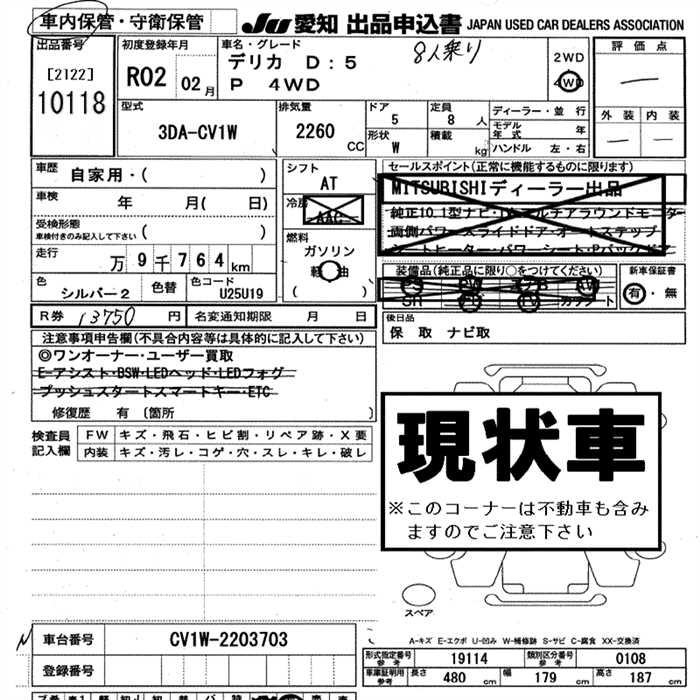 車内保管・守衛保管 JU 愛知 出品申込書 JAPAN USED CAR DEALERS ASSOCIATION
出品番号 初度登録年月 車名・グレード 8人乗り 評価点
[2122]
10118
R02 02月
デリカ D:5
P 4WD
2WD
4WD
外装 内装
型式 排気量 ドア 定員 ディーラー・並行
3DA-CV1W 2260 CC 5 8人
モデル年式 年
形状 積載
W kg
ハンドル 左・右
車歴 自家用・( )
シフト
AT
セールスポイント(正常に機能するものに限ります)
MITSUBISHIディーラー出品
純正10.1型ナビ・
マルチアラウンドモニター
両側パワースライドドア・オートステップ
シートヒーター・パワーシート・Pバックドア
車検 年 月( 日)
冷房
AAC
受検形態
車検付きのみ記入して下さい ( )
燃料
ガソリン
軽油
( )
走行 万9千764km
装備品(純正品に限り○をつけてください) 新車保証書
有・無
色 シルバー2 色替 色コード U25U19
R券 13750 円 名変通知期限 月 日
後日品
保 取 ナビ取
注意事項申告欄(不具合内容等は具体的に記入して下さい)
◎ワンオーナー・ユーザー買取
E-アシスト・BSW・LEDヘッド・LEDフォグ
プッシュスタートスマートキー・ETC
修復歴 有 〔箇所 〕
検査員記入欄
FW キズ・飛石・ヒビ割・リペア跡・X要
内装 キズ・汚レ・コゲ・穴・スレ・キレ・破レ
現状車
※このコーナーは不動車も含み
ますのでご注意下さい
スペア
A-キズ E-エクボ U-凹み W-補修跡 S-サビ C-腐食 XX-交換済
車台番号 CV1W-2203703
登録番号
型式指定番号 参考 19114 類別区分番号 参考 0108
車庫証明用 参考 長さ 480 cm 幅 179 cm 高さ 187 cm